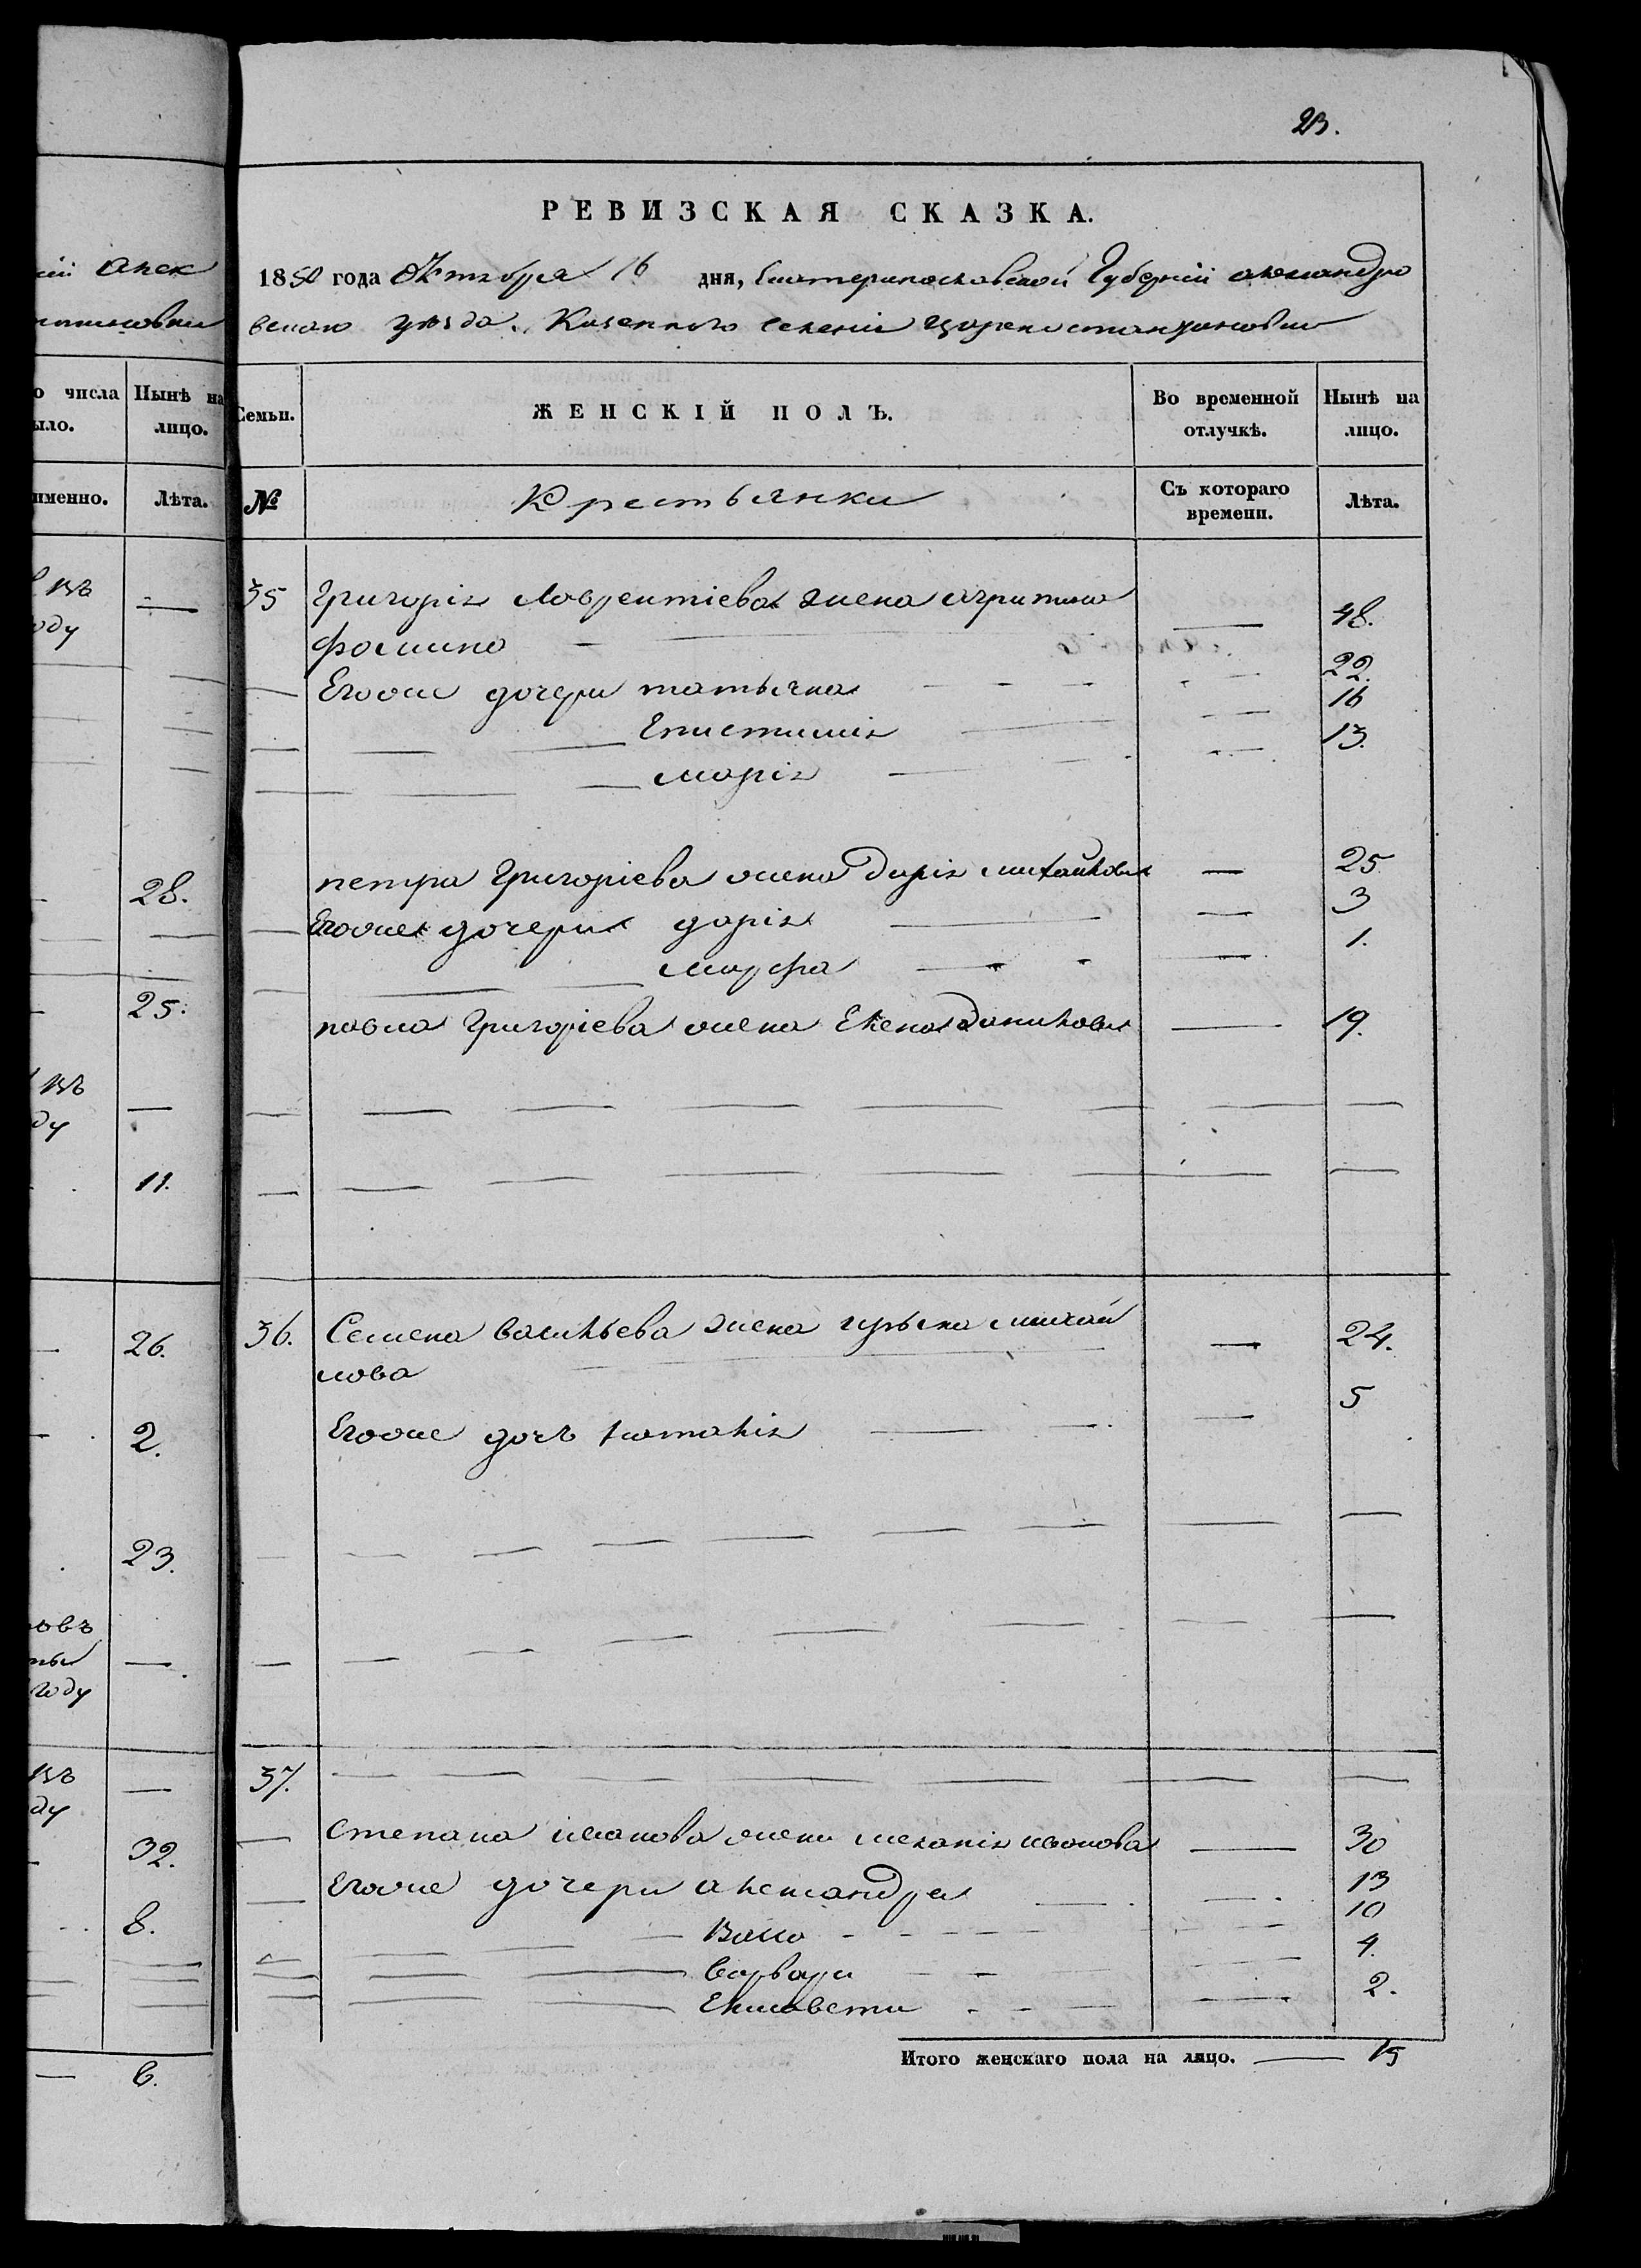 23.
РЕВИЗСКАЯ СКАЗКА.
1850 года Октября 16 дня, Екатеринославской Губерніи александро
вскаго уѣзда. Казенного селенія Цареконстантиновки
Семьи.
ЖЕНСКІЙ ПОЛЪ.
Во временной отлучкѣ.
Нынѣ на лицо.
№
Крестьянки
Съ котораго времени.
Лѣта.
35 Григорія Лаврентіева жена агрипина
фомина — 48.
Егоже дочери татьяна 22.
Епистимія 16
марія 13.
петра Григоріева жена Дарія михайлова — 25
Егоже дочери дарія — 3
марфа — 1.
павла Григоріева жена Елена Данилова — 19.
36. Семена васильева жена михай
лова — 24.
Егоже дочь наталія — 5
37.
степана иванова жена меланія иванова — 30
Егоже дочери александра 13
10
варвара 4.
Елисавета 2.
Итого женскаго пола на лицо. — 15
ій Алек
о числа
ыло.
Нынѣ на
лицо.
именно.
Лѣта.
въ
оду
28.
25.
въ
ду
11.
26.
2.
23.
овъ
ты
году
въ
ду
32.
8.
— 6.